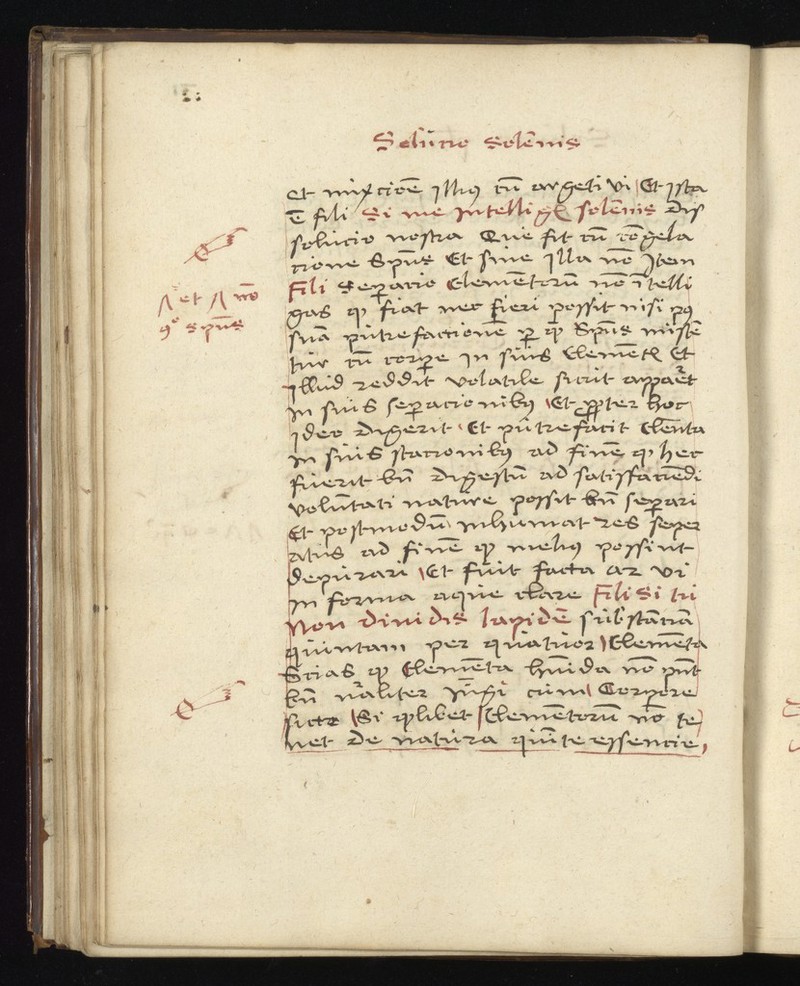 Solucio solēnis
et mixcioē illiꝰ cū argēti vi Et ista
ē fili Si me intelligꝭ solēnis dis
solucio nostra Que fit cū cōgela
cione Spūs Et sine illa nō Itē
Fili Seperacio elementorū nō ītelli
et nō
gas ꝙ fiat nec fieri possit nisi pꝰ
9º spūs
suā putrefactionē ꝑ ꝙ Spūs miscē
tur cū corpe in suis elementꝭ Et
illud reddit volatile sicut appāet
in suis sepacionibꝰ Et ꝓpter hoc
ideo digerit Et putrefacit elēnta
in suis stacionibꝰ ad finē ꝙ hec
fuerit bn̄ digestū ad satisfaciēdi
voluntati nature possit bn̄ separi
Et postmodū inhumat res seper
atus ad finē ꝙ meliꝰ possint
depurari Et fuit facta ar vi
in forma aque clare Fili Si tu
Non diuidis lapidē substāciā
quintam per quatuor Elemēta
Scias ꝙ Elemēta hūida nō pn̄t
bn̄ nāliter iūgi cum Corpore
sicco Si qlibet Elementorū nō te
net de natura quīte essencie